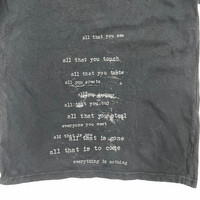 all that you see
all that you touch
all that you taste
all you create
all that you buy
all that you steal
everyone you meet
all that is gone
all that is to come
everything is nothing